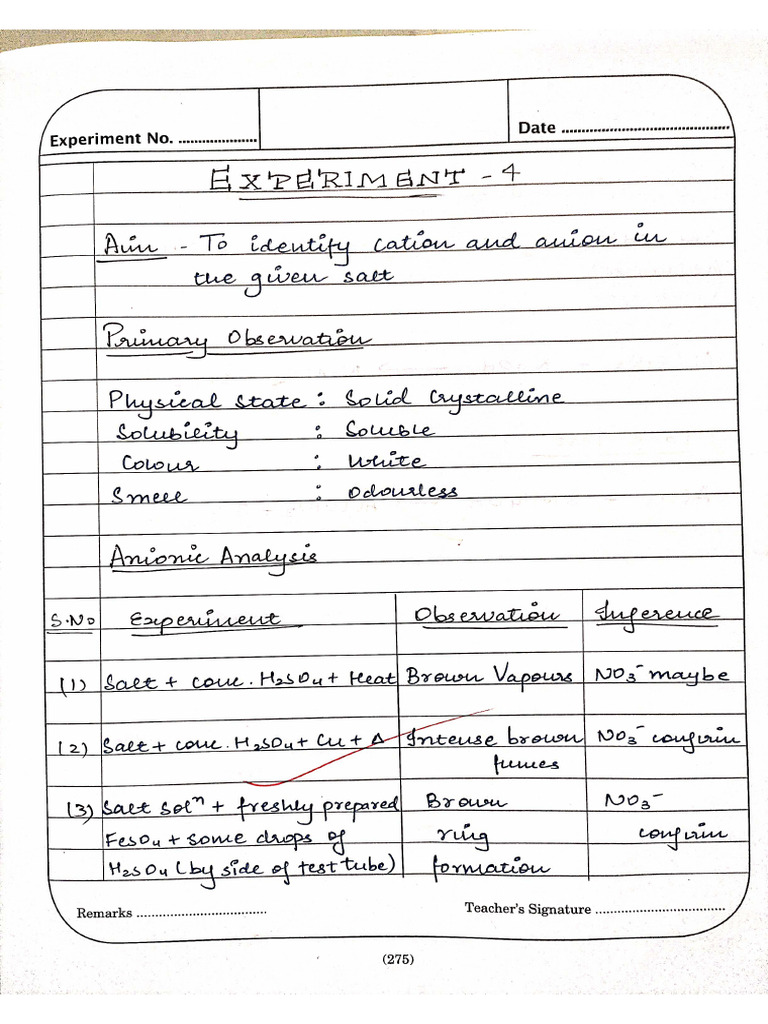 Experiment No. ...................
Date ..........................................
EXPERIMENT - 4
Aim - To identify cation and anion in
the given salt
Primary Observation
Physical state : Solid Crystalline
Solubility : Soluble
Colour : White
Smell : Odourless
Anionic Analysis
S.No Experiment Observation Inference
(1) Salt + conc. H2SO4 + Heat Brown Vapours NO3⁻ maybe
(2) Salt + conc. H2SO4 + Cu + Δ Intense brown NO3⁻ confirm
fumes
(3) Salt solⁿ + freshly prepared Brown NO3⁻
FeSO4 + some drops of ring confirm
H2SO4 (by side of test tube) formation
Remarks ...................................
Teacher's Signature ...................................
(275)